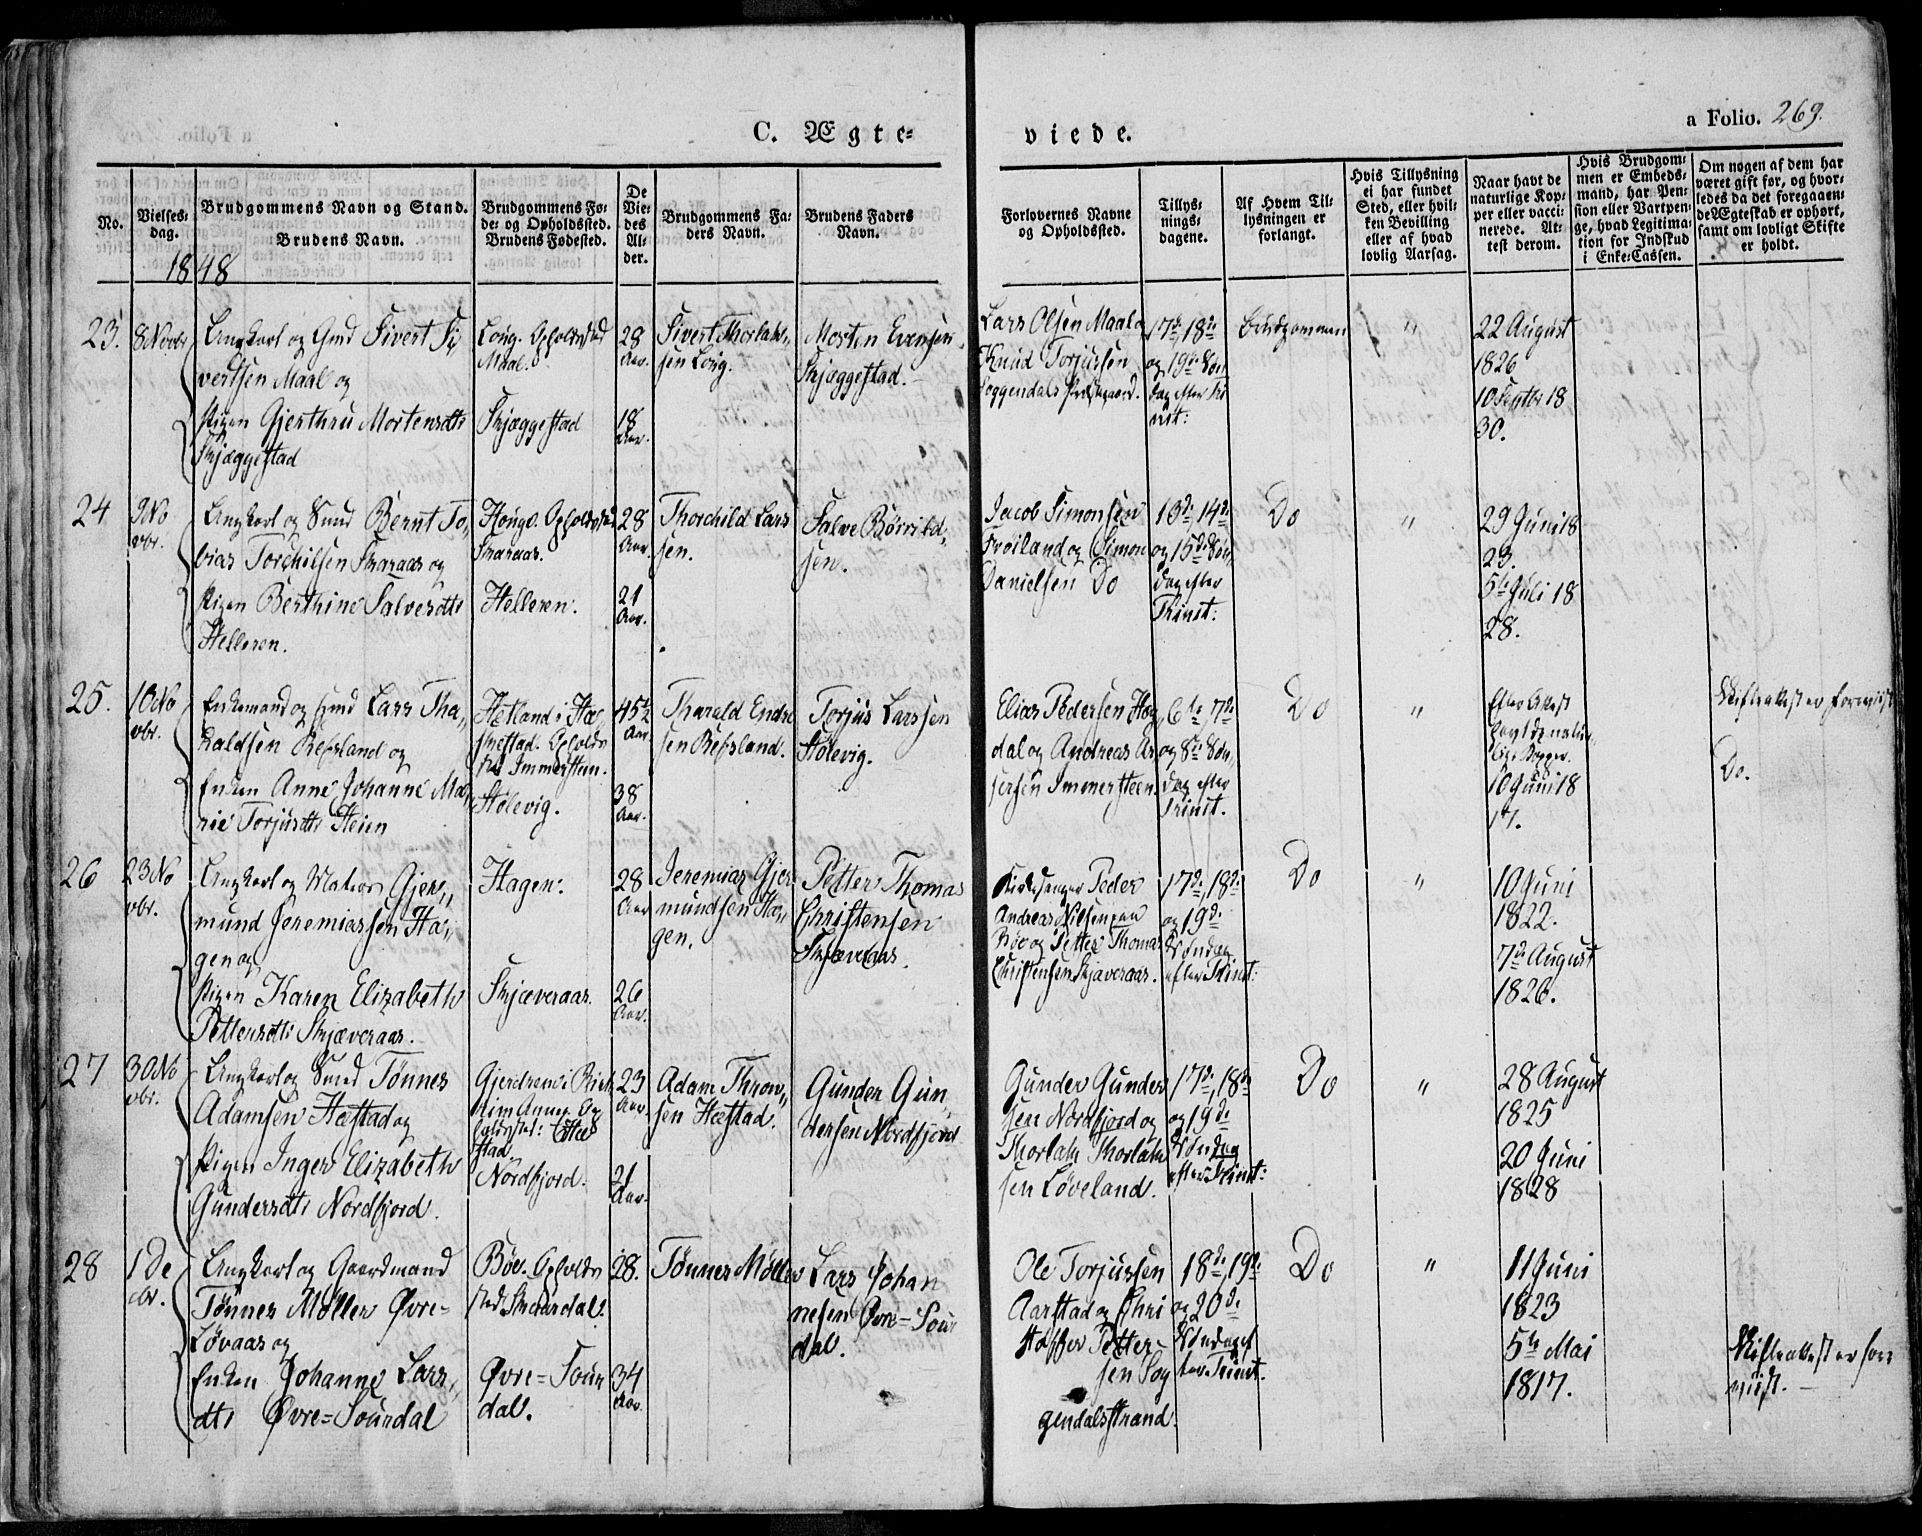 C. Ægte-
viede.
a Folio. 269.
No.
Vielses-
dag.
Brudgommens Navn og Stand.
Brudens Navn.
Brudgommens Fø-
de- og Opholdssted.
Brudens Fødested.
De
Vie-
des
Al-
der.
Brudgommens Fa-
ders Navn.
Brudens Faders
Navn.
Forlovernes Navne
og Opholdssted.
Tillys-
nings-
dagene.
Af Hvem Til-
lysningen er
forlangt.
Hvis Tillysning
ei har fundet
Sted, eller hvil-
ken Bevilling
eller af hvad
lovlig Aarsag.
Naar havt de
naturlige Kop-
per eller vacci-
nerede. At-
test derom.
Hvis Brudgom-
men er Embeds-
mand, har Pen-
sion eller Vartpen-
ge, hvad Legitima-
tion for Indskud
i Enke-Cassen.
Om nogen af dem har
været gift før, og hvor-
ledes da det foregaaen-
de Ægteskab er ophørt,
samt om lovligt Skifte
er holdt.
1848
23.
8 Novbr
Ungkarl og Gmd Sivert Si-
vertsen Maal og
Pigen Gjerthru Mortensdtr
Skjæggestad
Loug. Opholdsted
Maal.
Skjæggestad
28
Aar.
18
Aar.
Sivert Thorlak-
sen Loug.
Morten Evensen
Skjæggestad.
Lars Olsen Maal og
Knud Torjussen
Soggendals Præstegaard.
17de 18de
og 19de Søn-
dag efter Tri
nit:
Brudgommen
"
22 August
1826
10 Septbr 18
30.
24
9 No
vbr.
Ungkarl og Gmd Bernt To-
bias Torchilsen Skaraas og
Pigen Berthine Salvesdtr
Helleren.
Houge. Opholdsted
Skaraas.
Helleren.
28
Aar.
21
Aar.
Thorchild Lars
sen.
Salve Børrild-
sen.
Jacob Simonsen
Frøiland og Simon
Danielsen Do
13de 14de
og 15de Søn-
dag efter
Trinit:
Do
"
29 Juni 18
23.
5te Juli 18
28.
25.
10 No
vbr.
Enkemand og Gmd Lars Tha-
raldsen Refsland og
Enken Anne Johanne Ma-
rie Torjusdtr Heien
Hetland i Hæ
skestad. Opholds
sted Immerstein.
Stølevig.
45½
Aar
38
Aar.
Tharald Endre
sen Refsland.
Torjus Larssen
Stølevig.
Elias Pedersen Hog
dal og Andreas As
sersen Immersteen.
6te 7de
og 8de Søn-
dag efter
Trinit.
Do
"
Efter Attest
havt de natur
lige Kopper.
10 Juni 18
17.
Skifteattest er foreviist
Do.
26
23 No
vbr.
Ungkarl og Matros Gjer-
mund Jeremiassen Ha-
gen og
Pigen Karen Elizabeth
Pettersdtr Skjæveraas.
Hagen.
Skjæveraas.
28
Aar
26
Aar.
Jeremias Gjer
mundsen Ha-
gen.
Petter Thomas
Christensen
Skjæveraas.
Kirkesanger Peder
Andreas Nilsen paa
Bøe og Petter Thomas
Christensen Skjæveraas.
17de, 18de
og 19de
Søndag
efter Trinit:
Do
"
10 Juni
1822.
7de August
1826.
27
30 No
vbr.
Ungkarl og Gmd Tønnes
Adamsen Hæstad og
Pigen Inger Elizabeth
Gundersdtr Nordfjord.
Nordfjord.
23
Aar.
21
Aar.
Adam Thron-
sen Hæstad.
Gunder Gun-
dersen Nordfjord
Gunder Gunder
sen Nordfjord og
Thorlak Thorlak
sen Løveland.
17de, 18de
og 19de
Søndag
efter Trinit:
Do
"
28 August
1825
20 Juni
1828
28
1 De
cbr.
Ungkarl og Gaardmand
Tønnes Møller Øvre=
Løvaas og
Enken Johanne Lars-
dtr Øvre=Sourdal
Bøe. Opholds
sted Sourdal.
Øvre=Sour
dal.
28.
34
Aar.
Tønnes Møller
Lars Johan
nesen Øvre=Sour
dal.
Ole Torjussen
Aarstad og Chri
stoffer Petter
sen Sog
gendalsstrand.
18de, 19de
og 20de
Søndag ef
ter Trinit.
Do
"
11 Juni
1823
5te Mai
1817.
Skifteattest er fore
viist.